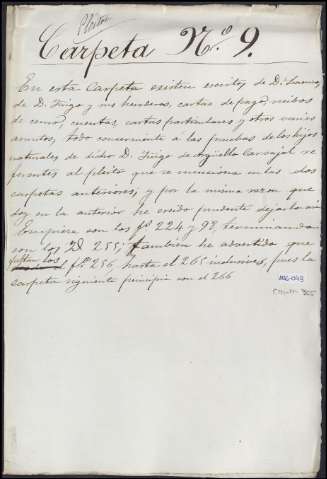 Pleitos
Carpeta N.º 9.
En esta Carpeta existen escritos de D.ª
de D. Iñigo y sus herederos, cartas de pago, recibos
de censos, cuentas, cartas particulares y otros varios
asuntos, todo concerniente á las pruebas de los hijos
naturales de dicho D. Iñigo de Argüello Carvajal re
ferentes al pleito que se menciona en las dos
carpetas anteriores; y por la misma razon que
doy en la anterior he creido prudente dejarlo asi
Empieza con los f.º 224 y 98, terminando
con los 2d 255; tambien he advertido que
faltan los f.ºs 256, hasta el 265 inclusives, pues la
carpeta siguiente principia con el 266